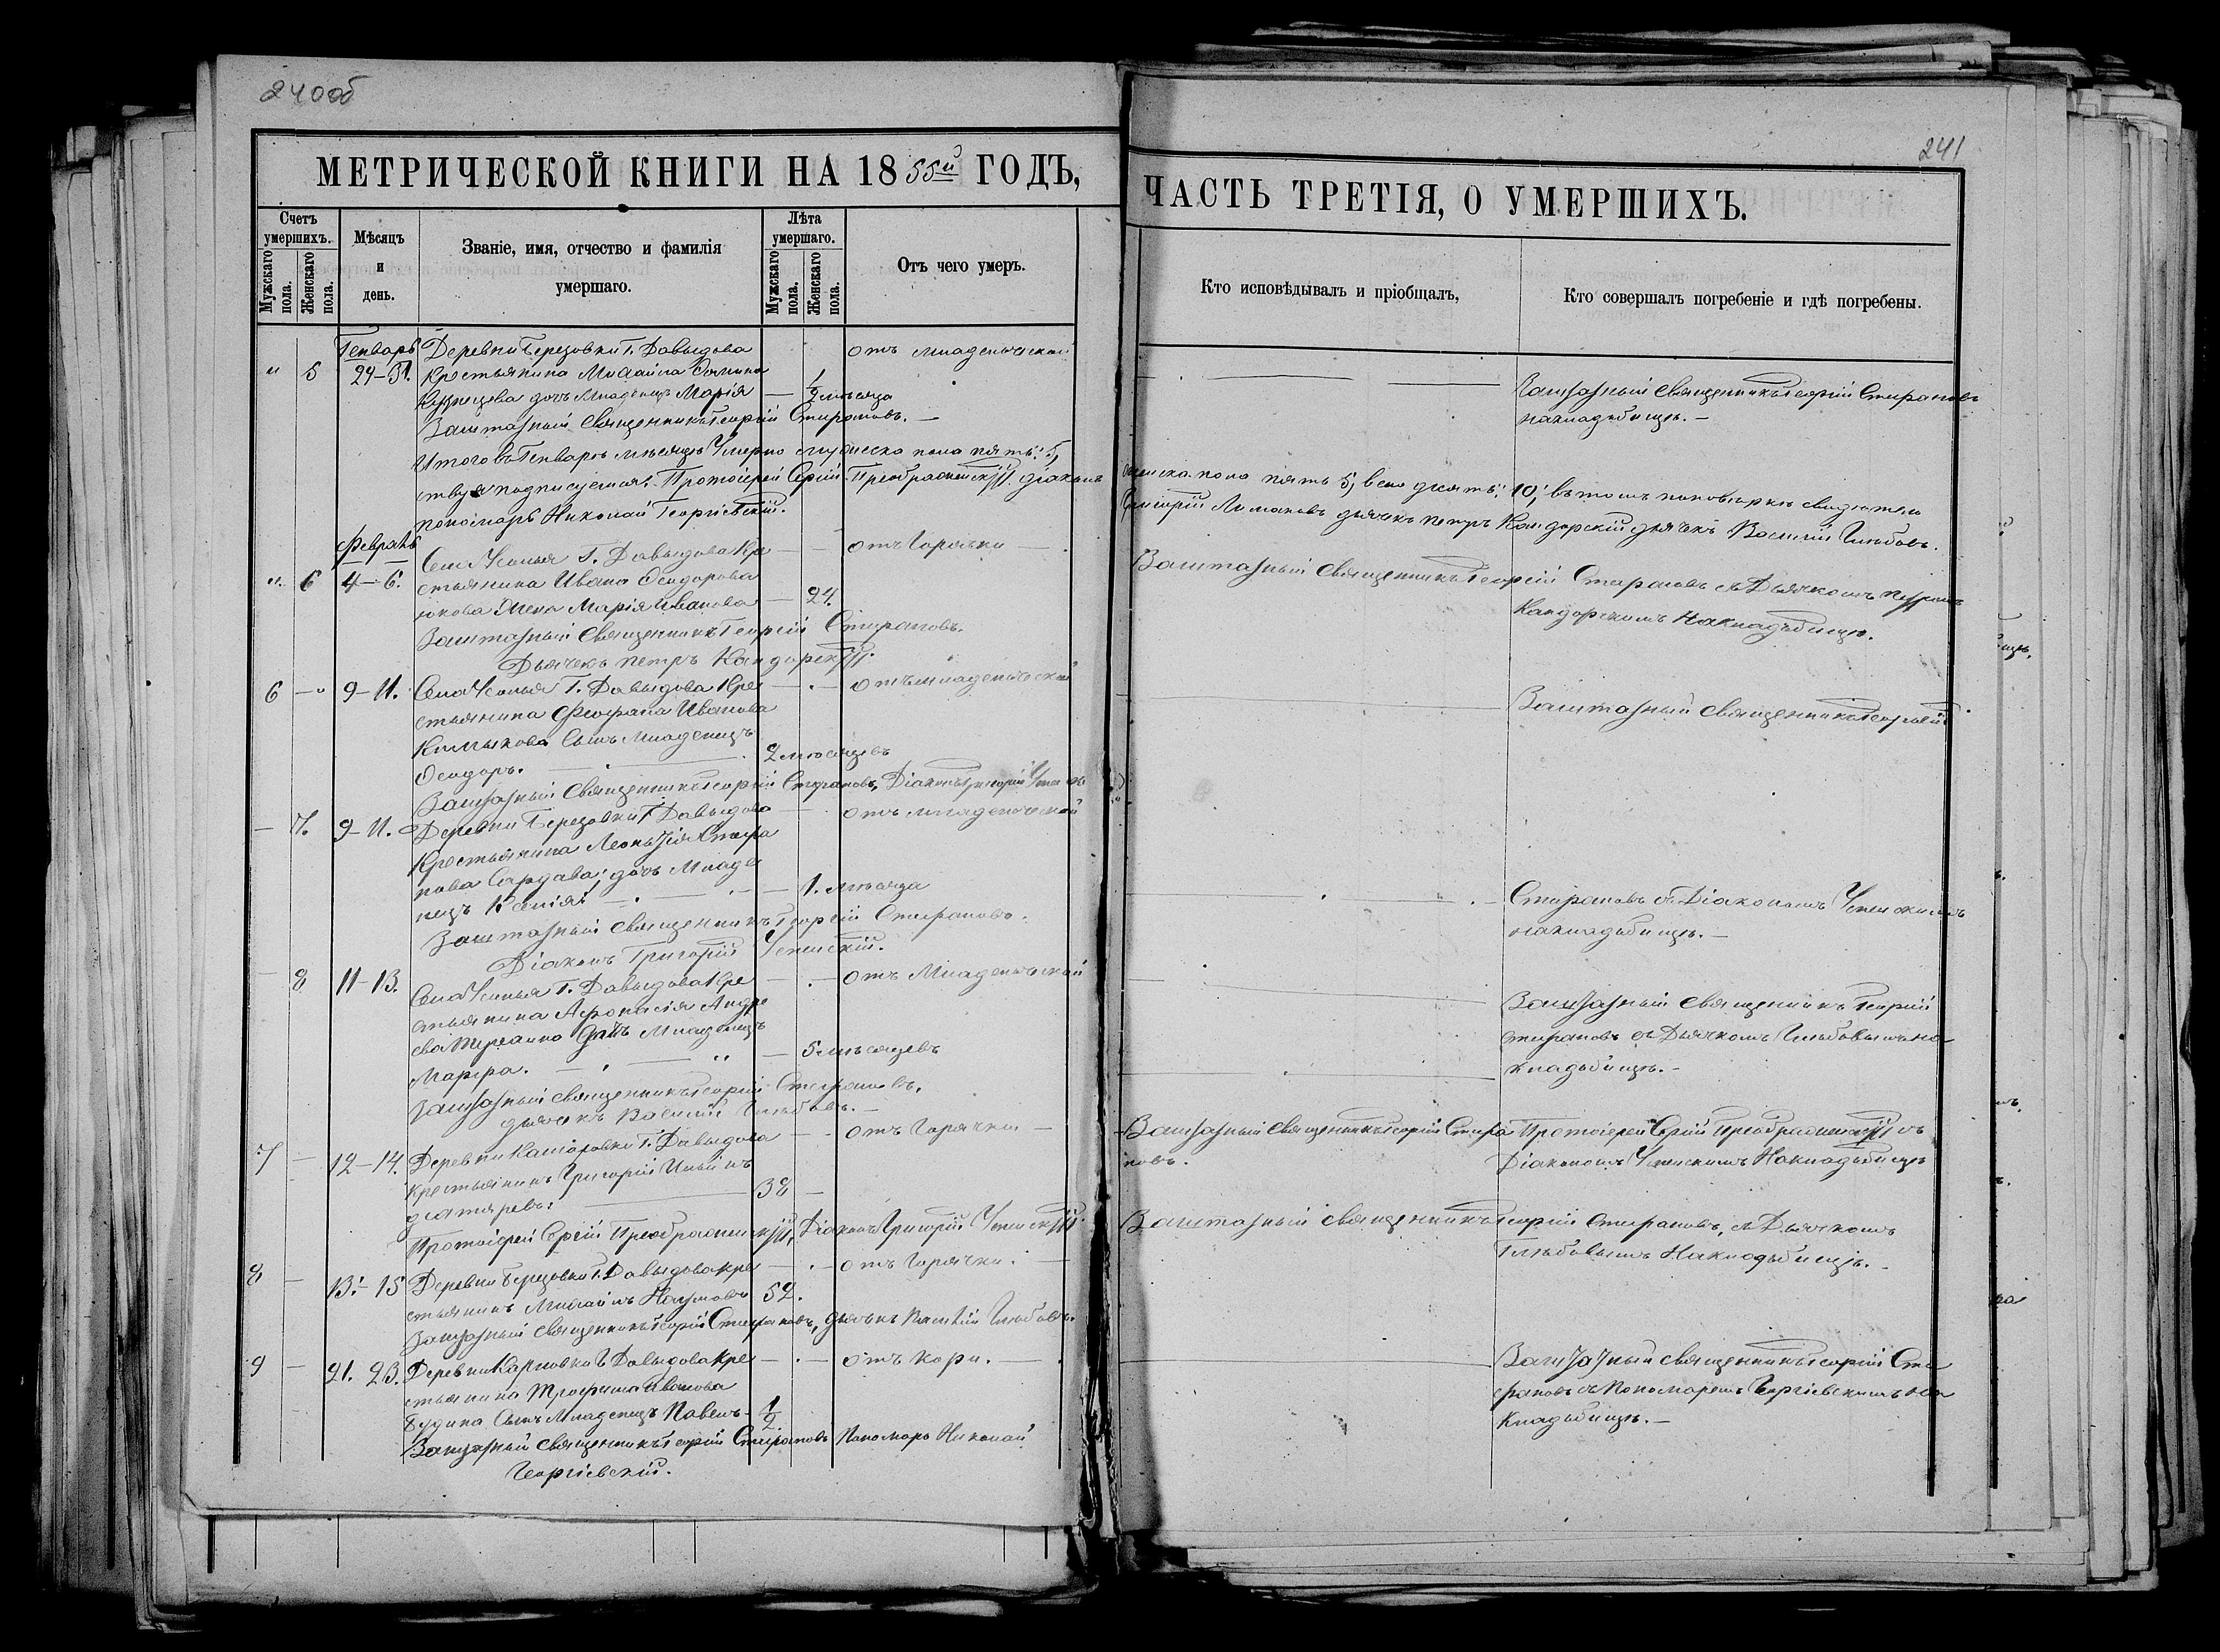 240об
МЕТРИЧЕСКОЙ КНИГИ НА 1855й ГОДЪ,
Счетъ умершихъ.
Мужскаго пола.
Женскаго пола.
Мѣсяцъ и день.
Званіе, имя, отчество и фамилія умершаго.
Лѣта умершаго.
Мужскаго пола.
Женскаго пола.
Отъ чего умеръ.
Генварь Деревни Березовки Г. Давыдова отъ младенческой
" 5 29-31. Крестьянина Михаила
Кузнецова дочь Младенецъ Марія — 1/2 мѣсяца
Заштатный Священникъ Георгій Стефановъ. —
Итого въ Генварѣ мѣсяцѣ Умерло мужеска пола пять: 5,
ствуя подписуемся: Протоіерей Сергій Преображенскій. діаконъ
пономарь Николай Георгіевскій.
Февраль
Села Усолья Г. Давыдова Кре — — отъ Горячки — .
" 6 4-6. стьянина Ивана Ѳеодорова
жена Марія Иванова — 24.
Заштатный Священникъ Георгій Стефановъ.
Дьячекъ Петръ Кандорскій.
6 — 9-11. Села Усолья Г. Давыдова Кре — . — отъ младенческой
стьянина Феофана Иванова
Калмыкова Сынъ Младенецъ
Ѳеодоръ. — 2 мѣсяцевъ
Заштатный Священникъ Георгій Стефановъ, Діаконъ Григорій Успенскій
— 7. 9-11. Деревни Березовки Г. Давыдова — отъ младенческой
Крестьянина Леонтія Стефа
нова дочь Младе
нецъ Ксенія. — 1. мѣсяца
Заштатный Священникъ Георгій Стефановъ.
Діаконъ Григорій Успенскій.
— 8 11-13. Села Усолья Г. Давыдова Кре — . — отъ Младенческой
стьянина Афонасія Андре
ева дочь Младенецъ
Марфа. — " — 5 мѣсяцевъ
Заштатный Священникъ Георгій Стефановъ.
дьячекъ Василій Глѣбовъ. —
7 — 12-14. Деревни Г. Давыдова — отъ Горячки —
крестьянинъ Григорій Ильинъ
дегтяревъ: — 38 —
Протоіерей Сергій Преображенскій, Діаконъ Григорій Успенскій.
8 — 13-15 Деревни Березовки Г. Давыдова кре — . — отъ Горячки. —
стьянинъ Михаилъ Наумовъ 52.
Заштатный Священникъ Георгій Стефановъ, дьячекъ Василій Глѣбовъ.
9 — 21. 23. Деревни Карповки Г. Давыдова Кре — . — отъ кори. — .
стьянина Трофима Иванова
Будина Сынъ Младенецъ Павелъ — 1/2.
Заштатный Священникъ Георгій Стефановъ Пономарь Николай
Георгіевскій.
241
ЧАСТЬ ТРЕТІЯ, О УМЕРШИХЪ.
Кто исповѣдывалъ и пріобщалъ,
Кто совершалъ погребеніе и гдѣ погребены.
Заштатный Священникъ Георгій Стефановъ
на кладбищѣ. —
женска пола пять 5, всего десять: 10; въ томъ по повѣркѣ свидѣтель
Григорій Лимановъ дьячекъ Петръ Кандорскій дьячекъ Василій Глѣбовъ.
Заштатный Священникъ Георгій Стефановъ съ Дьячкомъ Петромъ
Кандорскимъ На кладбищѣ.
Заштатный Священникъ Георгій
Стефановъ съ Діакономъ Успенскимъ
на кладбищѣ. —
Заштатный Священникъ Георгій
Стефановъ съ Дьячкомъ Глѣбовымъ на
кладбищѣ. —
Заштатный Священникъ Георгій Стефа Протоіерей Сергій Преображенскій съ
новъ. Діакономъ Успенскимъ На кладбищѣ
Заштатный Священникъ Георгій Стефановъ, съ Дьячкомъ
Глѣбовымъ На кладбищѣ. —
Заштатный Священникъ Георгій Сте
фановъ съ Пономаремъ Георгіевскимъ на
Кладбищѣ. —